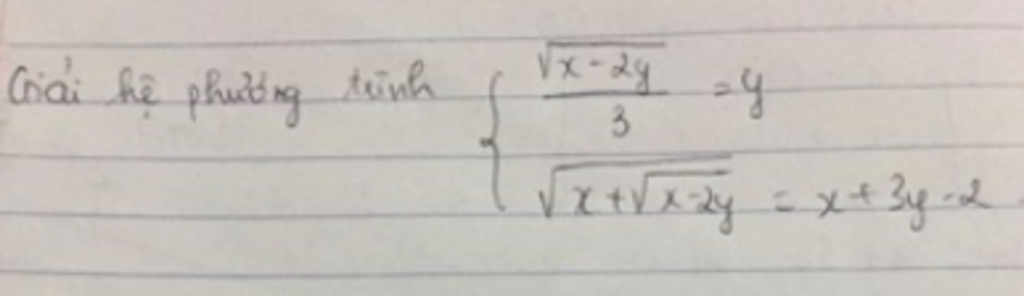 Giải hệ phương trình { √(x-2y) / 3 = y
√(x+√(x-2y)) = x+3y-2